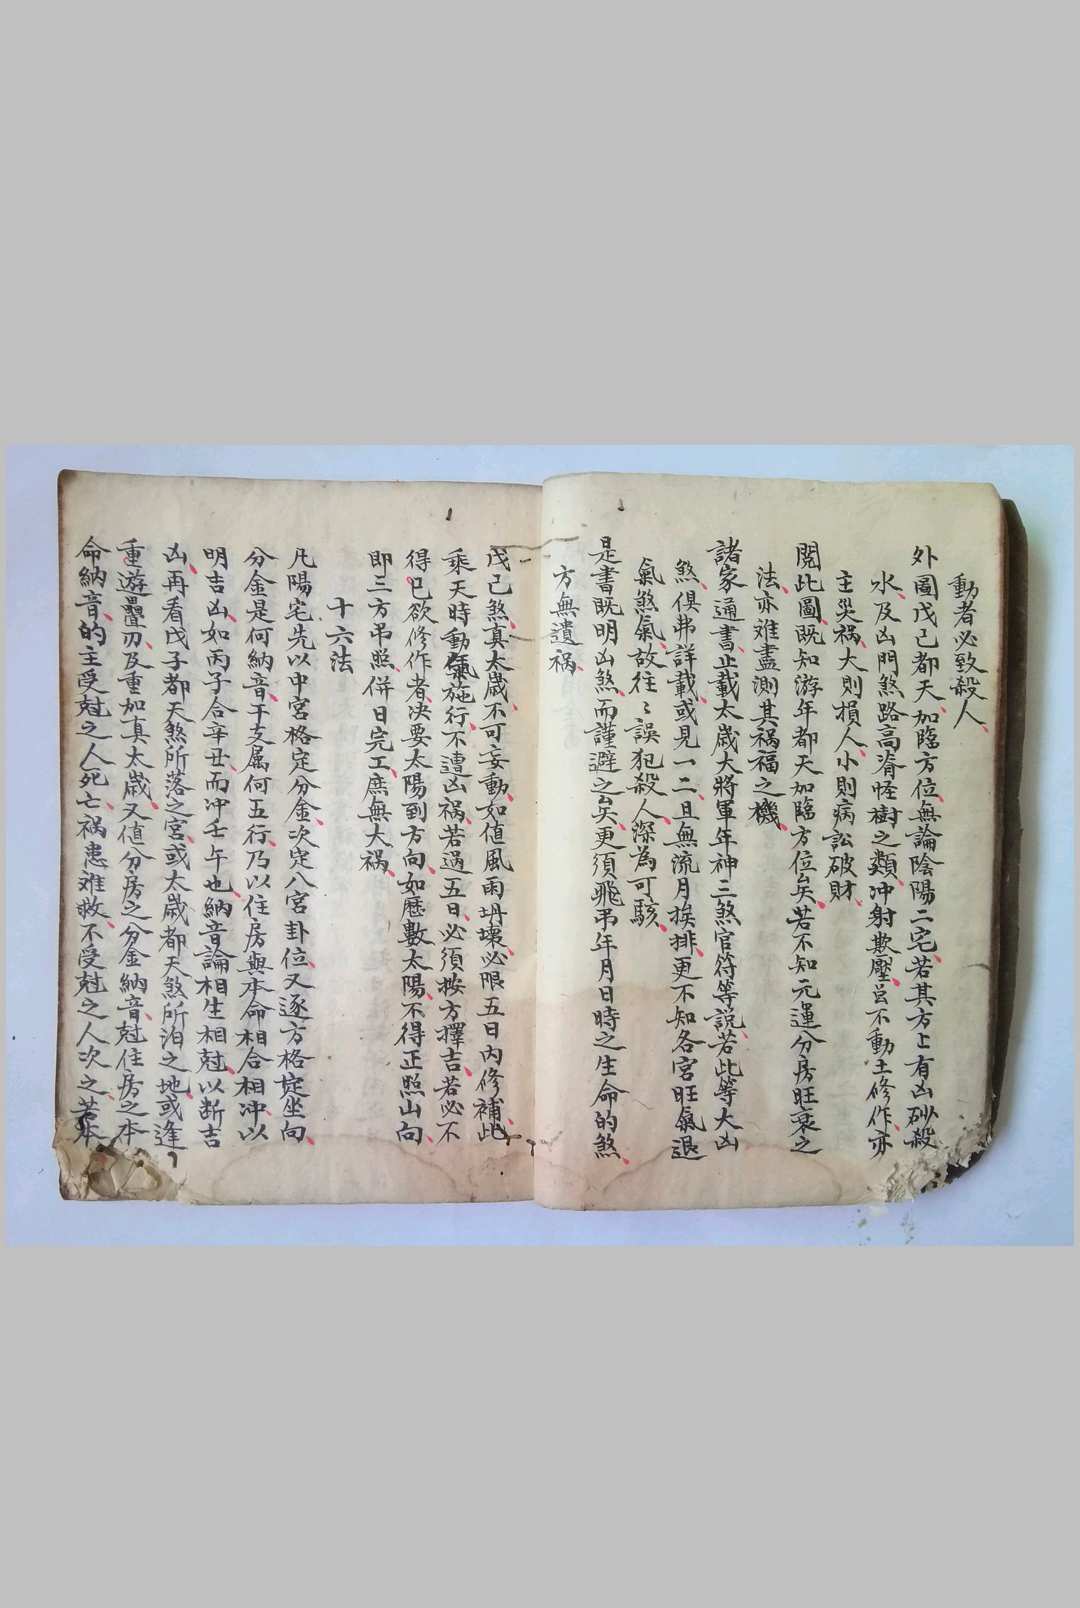 動者必致殺人
外圖戊己都天加臨方位無論陰陽二宅若其方上有凶砂殺
水及凶門煞路高脊怪樹之類冲射欺壓虽不動土修作亦
主災禍大則損人小則病訟破財
閱此圖既知游年都天加臨方位矣若不知元運分房旺衰之
法亦难盡測其禍福之機
諸家通書止載太歲大將軍年神三煞官符等說若此等大凶
煞俱弗詳載或見一二且無流月挨排更不知各宮旺氣退
氣煞氣故往〻誤犯殺人深為可駭
是書既明凶煞而謹避之矣更須飛吊年月日時之生命的煞
方無遺禍
戊己煞真太歲不可妄動如值風雨坍壞必限五日內修補此
乘天時動氣施行不遭凶禍若過五日必須按方擇吉若必不
得已欲修作者决要太陽到方向如歷數太陽不得正照山向
即三方吊照併日完工庶無大禍
十六法
凡陽宅先以中宮格定分金次定八宮卦位又逐方格定坐向
分金是何納音干支属何五行乃以住房與本命相合相冲以
明吉凶如丙子合辛丑而冲壬午也納音論相生相尅以断吉
凶再看戊子都天煞所落之宮或太歲都天煞所泊之地或逢
重遊疊刃及重加真太歲又值分房之分金納音尅住房之本
命納音的主受尅之人死亡禍患难救不受尅之人次之若本